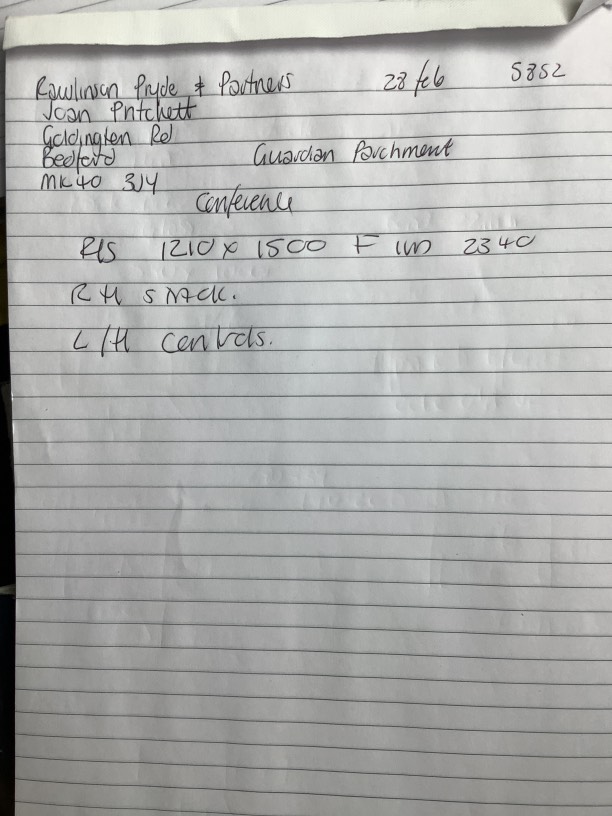 Rawlinson Pryde & Partners 28 feb 5852
Joan Pritchett
Goldington Rd
Bedford Guardian Parchment
MK40 3JY
Conference
R/S 1210 x 1500 F 2340
R H STACK.
L/H Controls.